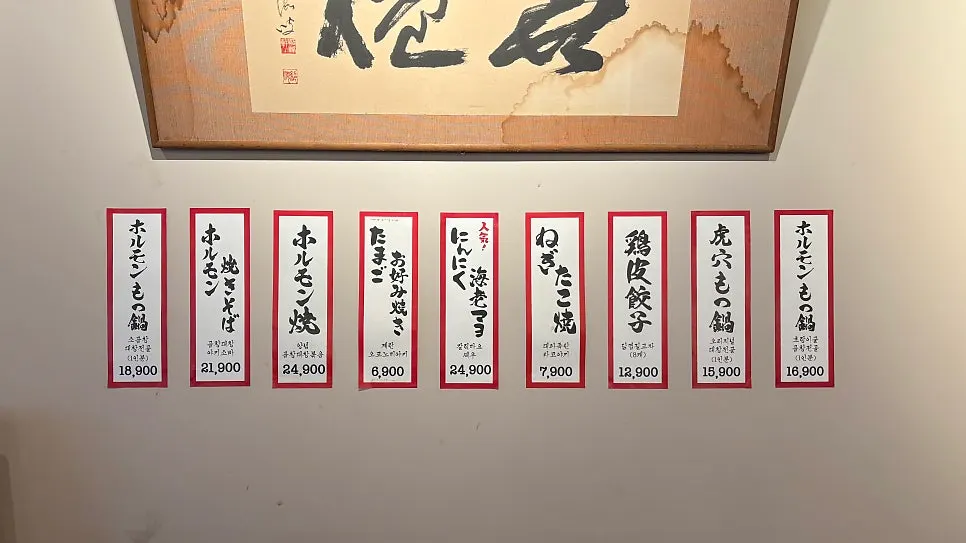 ホルモンもつ鍋
소곱창
대창전골
(1인분)
18,900
ホルモン
焼きそば
곱창대창
야키소바
21,900
ホルモン焼
양념
곱창대창볶음
24,900
たまご
お好み焼き
계란
오코노미야키
6,900
人気!
にんにく
海老マヨ
갈릭마요
새우
24,900
ねぎい
たこ焼
대파폭탄
타코야키
7,900
鶏皮餃子
닭껍질교자
(8개)
12,900
虎穴もつ鍋
오리지널
대창전골
(1인분)
15,900
ホルモンもつ鍋
호랑이굴
곱창전골
(1인분)
16,900